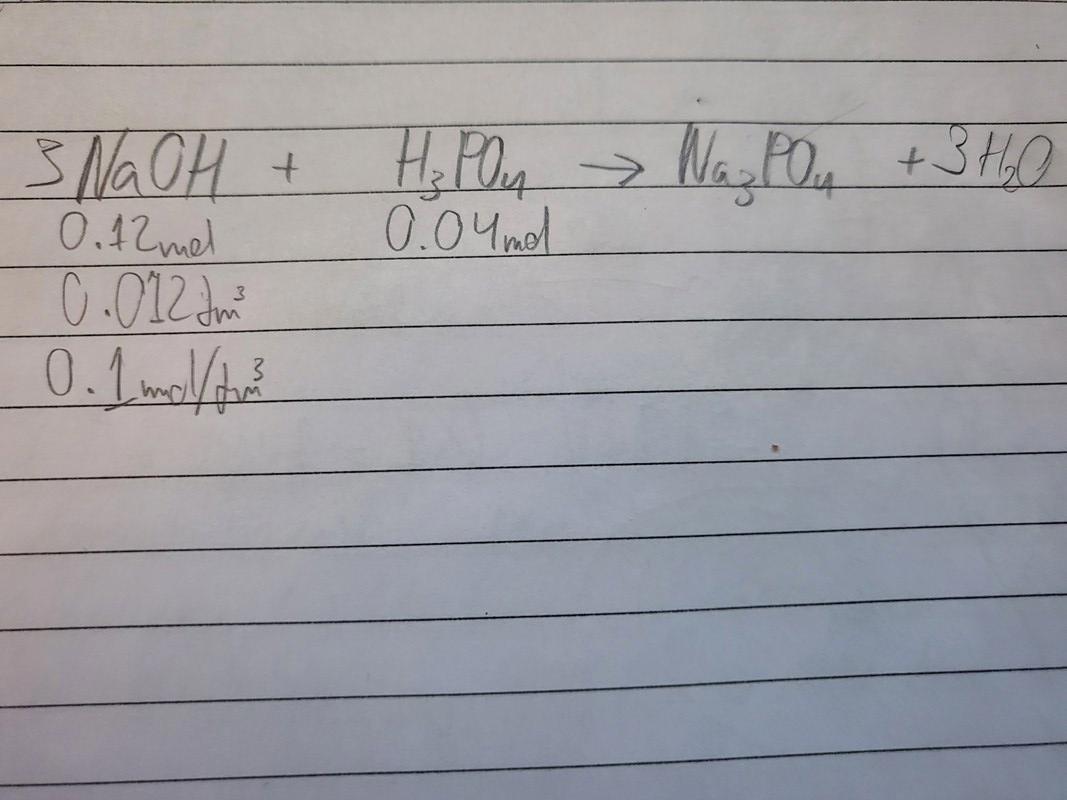 3NaOH + H₃PO₄ → Na₃PO₄ + 3H₂O
0.12mol 0.04mol
0.012dm³
0.1mol/dm³